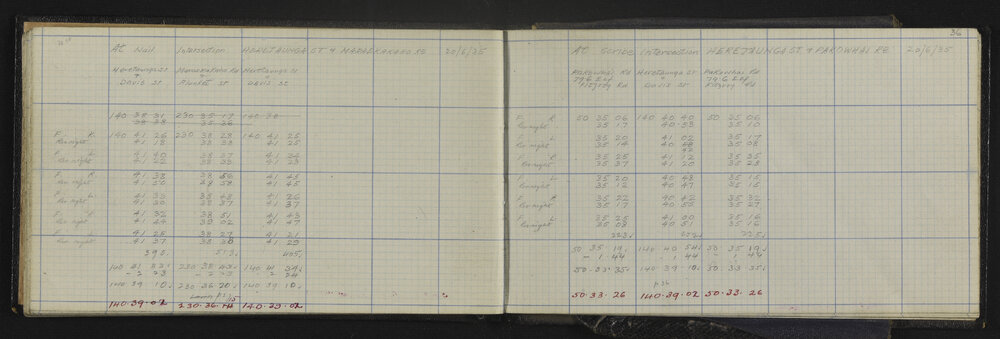 At Nail Intersection HERETAUNGA ST & MARAEKAKAHO RD 20/6/35
Heretaunga St Maraekakaho Rd Heretaunga St
Davis St Plunket St Davis St
140 38 31 230 35 17 140 38
38 28 35 36
F. R. 140 41 26 230 38 28 140 41 25
Rev night 41 18 38 33 41 25
F L 41 40 38 37 41 24
Rev night 41 22 38 33 41 23
F R 41 38 38 56 41 45
Rev night 41 50 38 58 41 45
F L 41 30 38 48 41 26
Rev night 41 30 38 37 41 37
F R 41 32 38 51 41 43
Rev night 41 44 39 02 41 47
F L 41 25 38 27 41 21
Rev night 41 37 38 30 41 29
395 513 405
140 41 33 230 38 43 140 41 34
- 2 23 - 2 23 2 24
140 39 10 230 36 20 140 39 10
140·39·02 230·36·14 140·39·02
36
At Scribe Intersection HERETAUNGA ST & PAKOWHAI RD 20/6/35
Pakowhai Rd Heretaunga St Pakowhai Rd
Fitzroy Rd Davis St Fitzroy Rd
F R 50 35 06 140 40 40 50 35 06
Rev night 35 17 40 53 35 10
F L 35 20 41 02 35 17
Rev night 35 14 40 58 35 08
42
F R 35 25 41 12 35 35
Rev night 35 37 41 20 35 28
F L 35 20 40 48 35 15
Rev night 35 12 40 47 35 15
F R 35 22 40 42 35 32
Rev night 35 17 40 55 35 27
F L 35 25 41 00 35 16
Rev night 35 08 40 51 35 16
223 225
50 35 19 140 40 54 50 35 19
- 1 44 1 44 - 1 44
50·33·35 140 39 10 50 33 35
50·33·26 140·39·02 50·33·26